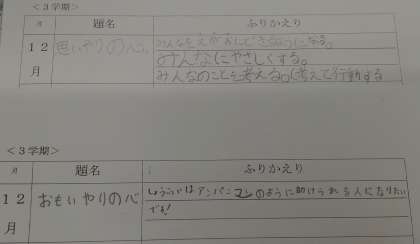 ＜3学期＞
月 題名 ふりかえり
12月 思いやりの心。 みんなをえがおにできるようになる。
みんなにやさしくする。
みんなのことを考える。(考えて行動する
＜3学期＞
月 題名 ふりかえり
12月 おもいやりの心 しょうらいはアンパンマンのように助けられる人になりたい
です!